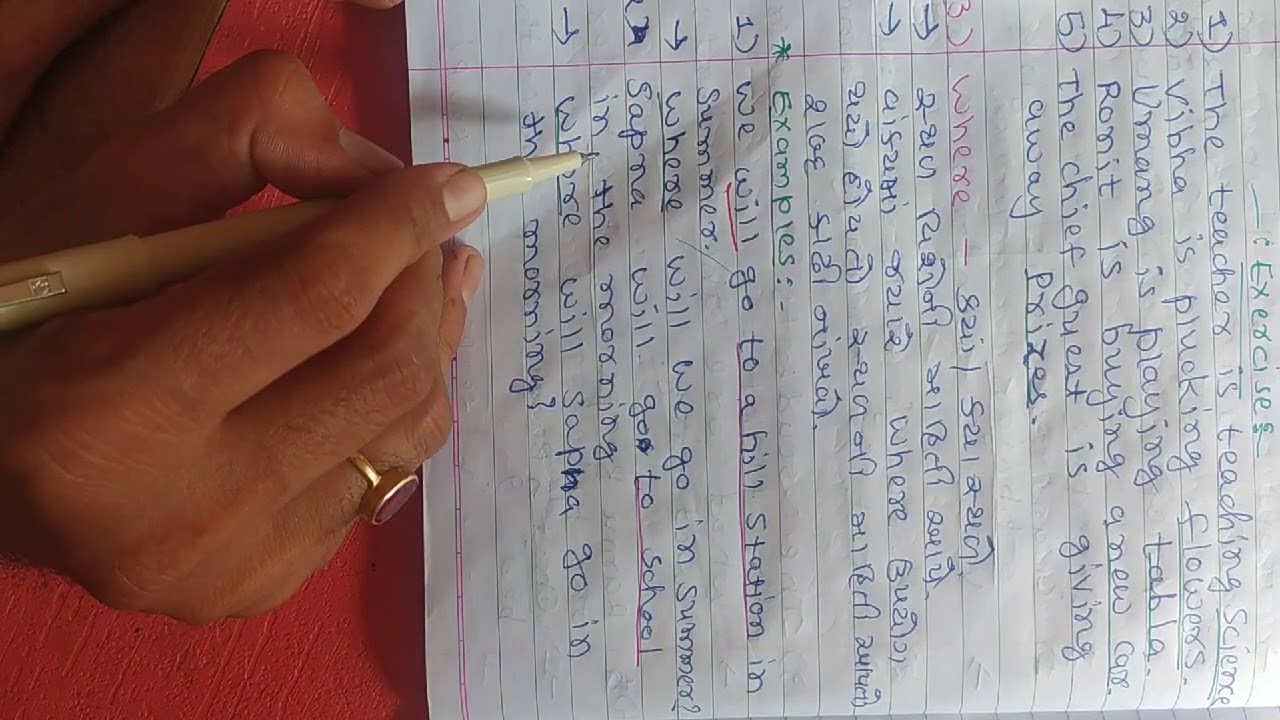 —: Exercise :-
1) The teacher is teaching Science
2) Vibha is plucking flowers.
3) Umang is playing tabla.
4) Romit is buying a new car.
5) The chief guest is giving
away prizes.
3.) Where – ક્યાં / ક્યા સ્થળે.
→ સ્થળ વિશેની માહિતી આપે.
→ વાક્યમાં જ્યારે Where ઉપયોગ
થયો હોય તો સ્થળની માહિતી આપતો
શબ્દ
* Examples :-
1) We will go to a hill station in
summer.
→ Where will we go in summer?
Sapna will go to school
in the morning
→ Where will Sapna go in
the morning?